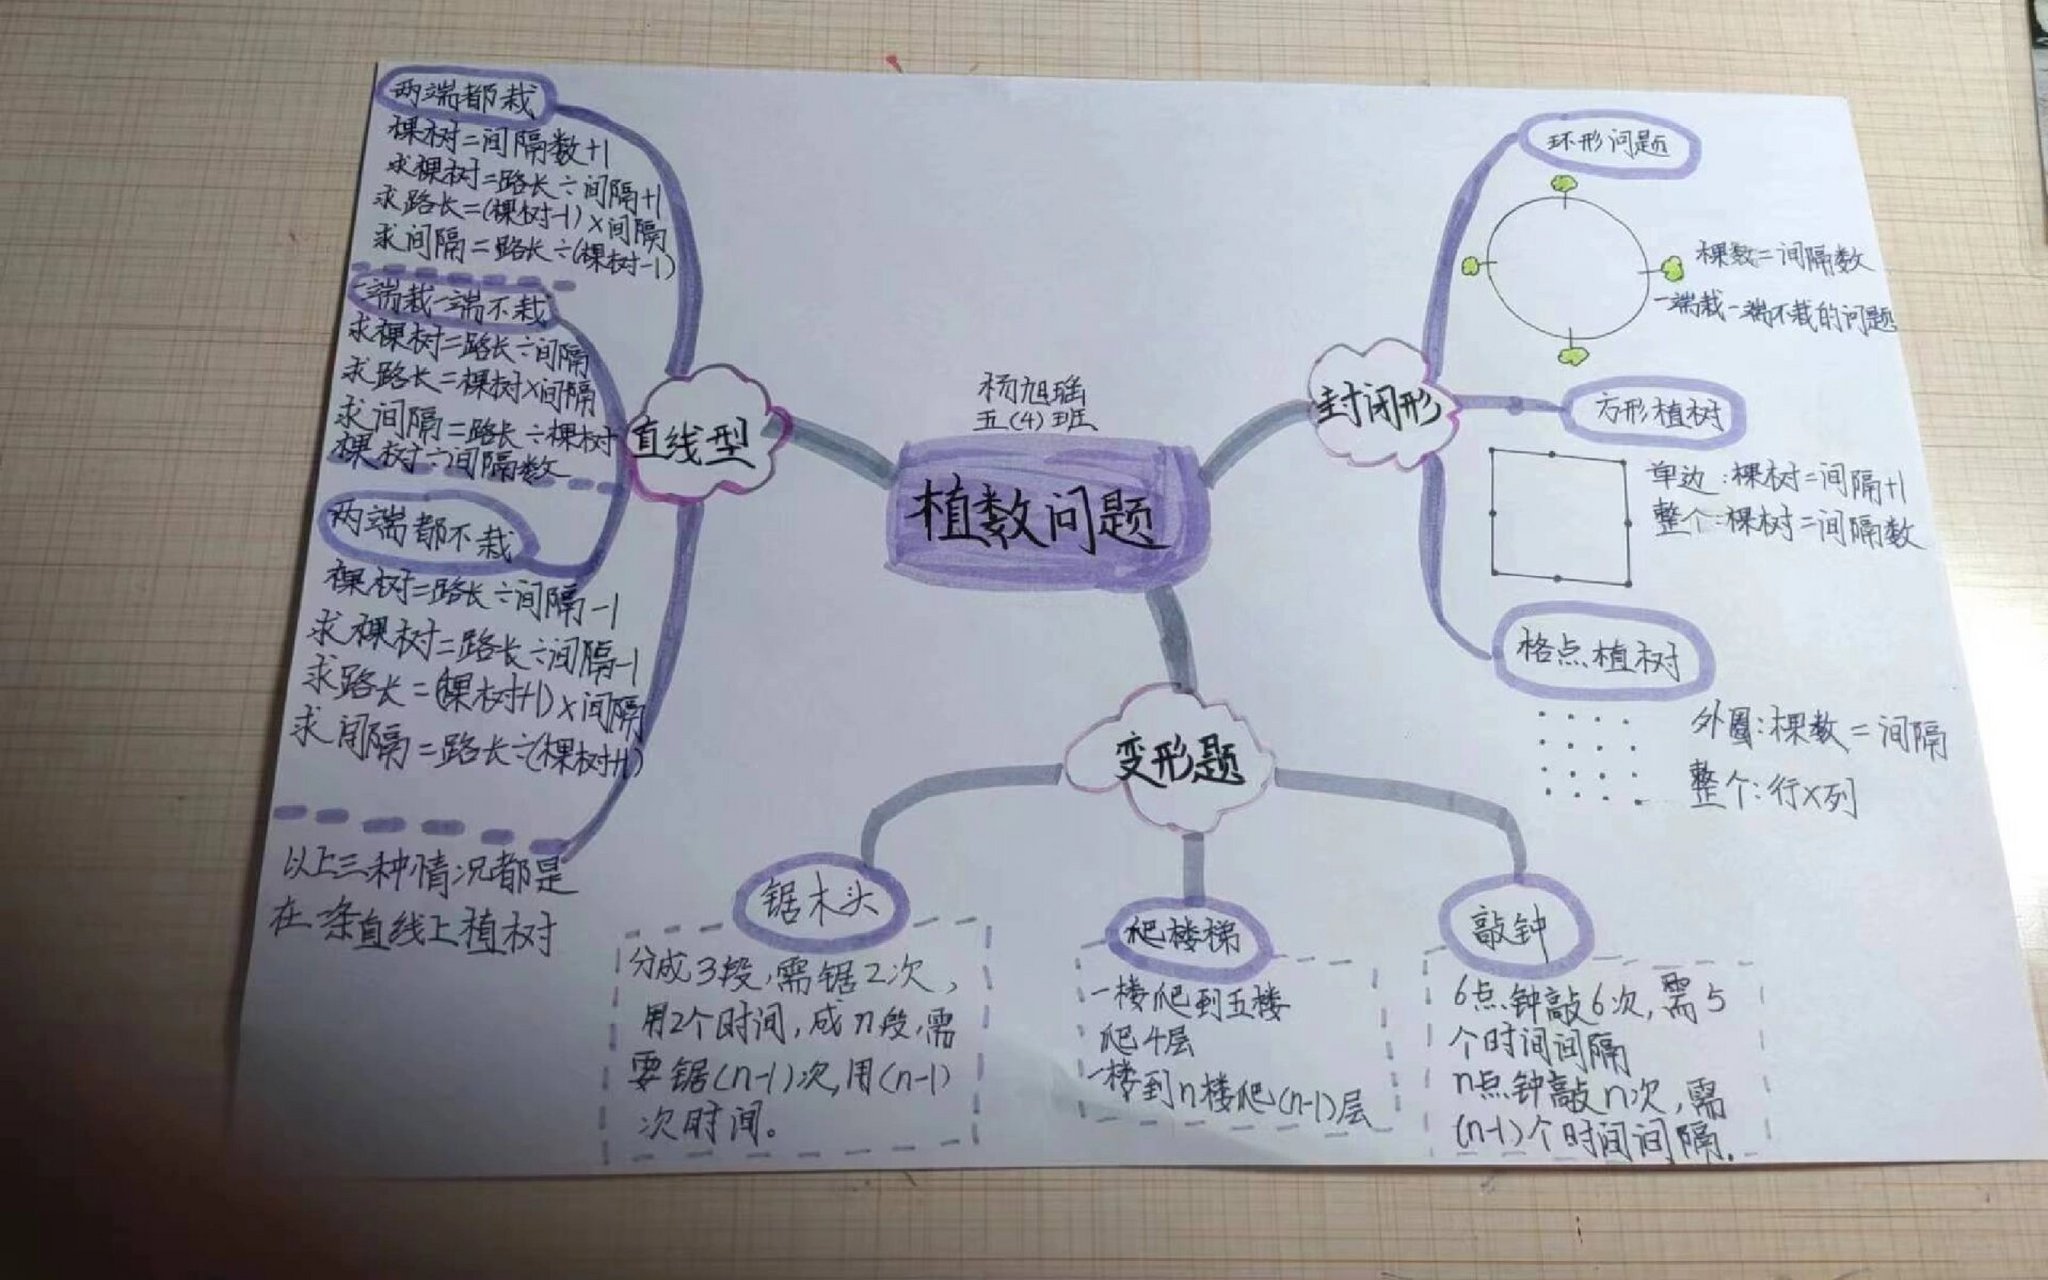 两端都栽
棵树=间隔数+1
求棵树=路长÷间隔+1
求路长=(棵树-1)×间隔
求间隔=路长÷(棵树-1)
一端栽一端不栽
求棵树=路长÷间隔
求路长=棵树×间隔
求间隔=路长÷棵树
棵树=间隔数
两端都不栽
棵树=路长÷间隔-1
求棵树=路长÷间隔-1
求路长=(棵树+1)×间隔
求间隔=路长÷(棵树+1)
以上三种情况都是
在一条直线上植树
直线型
杨旭瑶
五(4)班
植数问题
封闭形
环形问题
棵数=间隔数
一端栽一端不栽的问题
方形植树
单边:棵树=间隔+1
整个:棵树=间隔数
格点植树
外圈:棵数=间隔
整个:行×列
变形题
锯木头
分成3段,需锯2次,
用2个时间,成n段,需
要锯(n-1)次,用(n-1)
次时间。
爬楼梯
一楼爬到五楼
爬4层
一楼到n楼爬(n-1)层
敲钟
6点钟敲6次,需5
个时间间隔
n点钟敲n次,需
(n-1)个时间间隔.